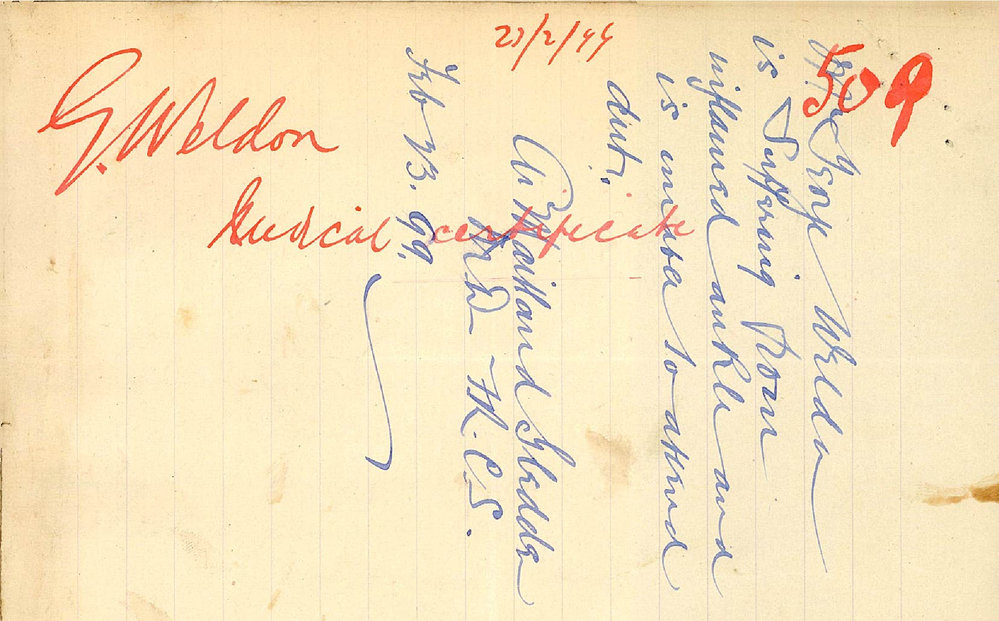 23/2/99
509
G. Weldon
Medical certificate
George Weldon
is suffering from
inflamed ankle and
is unable to attend
duty.
A. Maitland
MD FRCS.
Feb 23. 99.